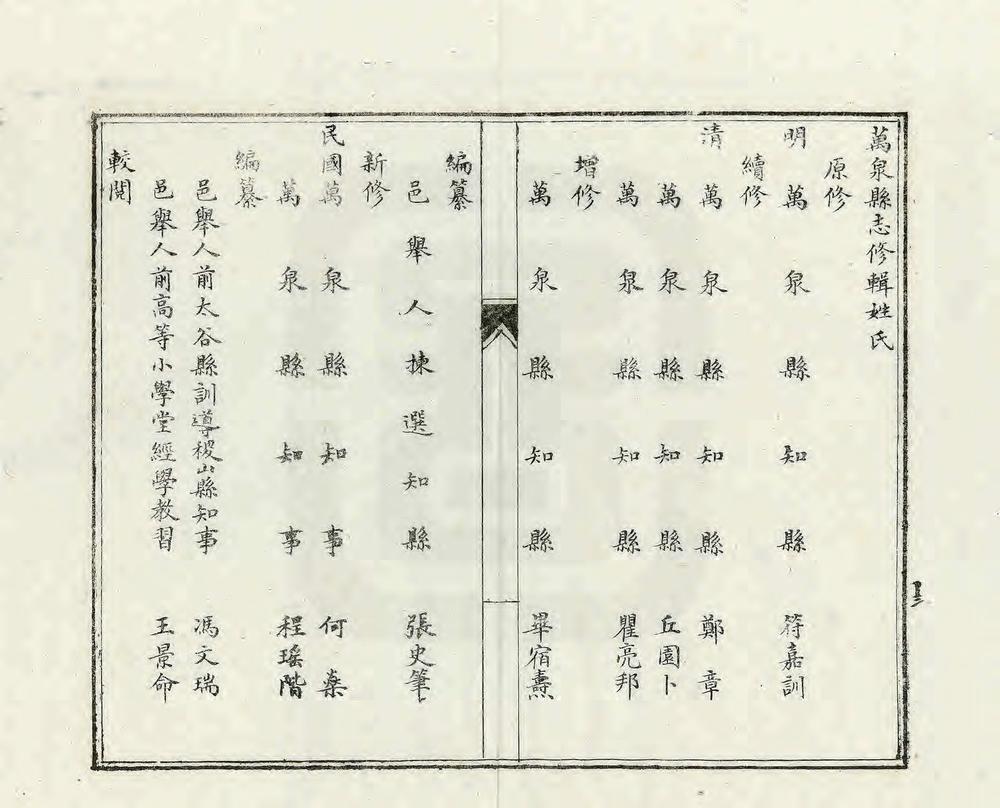 萬泉縣志修輯姓氏
原修
明 萬泉縣知縣 符嘉訓
續修
清 萬泉縣知縣 鄭章
萬泉縣知縣 丘園卜
萬泉縣知縣 瞿亮邦
增修
萬泉縣知縣 畢宿燾
編纂
邑舉人揀選知縣 張史筆
新修
民國萬泉縣知事 何燊
萬泉縣知事 程瑤階
編纂
邑舉人前太谷縣訓導稷山縣知事 馮文瑞
邑舉人前高等小學堂經學教習 王景命
較閱